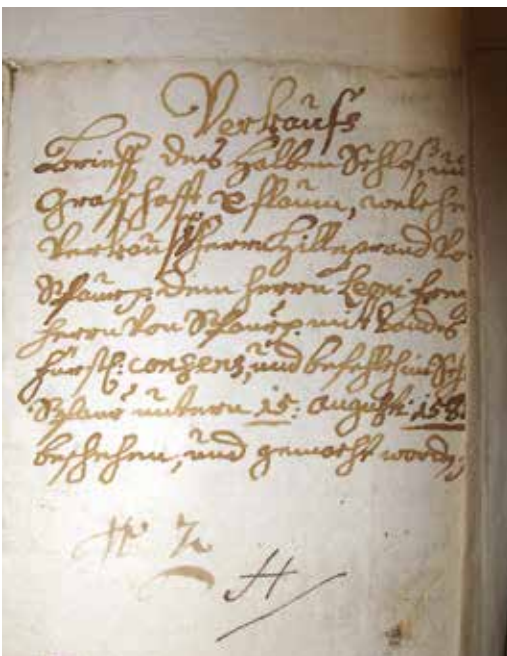 Verkaufs
brieff des halben Schloß, und
Graffschafft Pflaum, welche
Verkauff Herrn Hilleprand Vo
Spaur p: dem Herrn Leoni frey
herrn Von Spaur p: mit Landes
fürstl: consens, und befehlch im Sch
untern 15: Augusti: 158
beschehen, und gemacht worden;
N 7
H